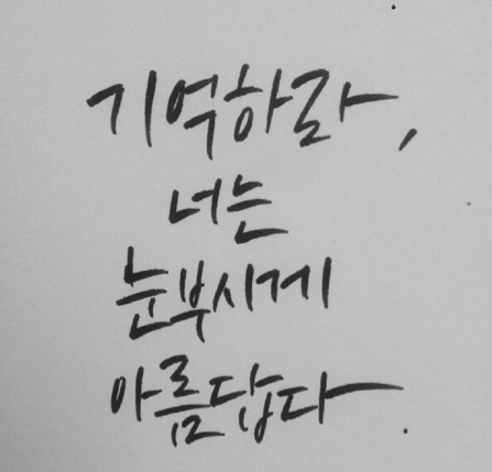 기억하라,
너는
눈부시게
아름답다.